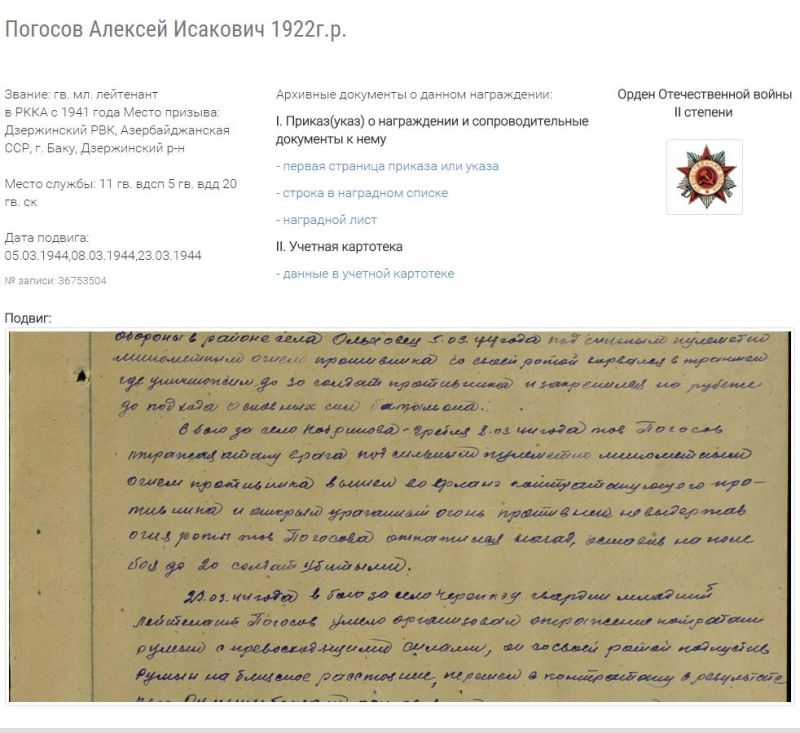 Погосов Алексей Исакович 1922г.р.
Звание: гв. мл. лейтенант
в РККА с 1941 года Место призыва:
Дзержинский РВК, Азербайджанская
ССР, г. Баку, Дзержинский р-н
Место службы: 11 гв. вдсп 5 гв. вдд 20
гв. ск
Дата подвига:
05.03.1944,08.03.1944,23.03.1944
№ записи: 36753504
Архивные документы о данном награждении:
I. Приказ(указ) о награждении и сопроводительные
документы к нему
- первая страница приказа или указа
- строка в наградном списке
- наградной лист
II. Учетная картотека
- данные в учетной картотеке
Орден Отечественной войны
II степени
Подвиг:
обороны в районе села Ольховец 5.03.44 года под сильным пулеметно
минометным огнем противника со своей ротой ворвался в траншеи
где уничтожил до 30 солдат противника и закрепился на рубеже
до подхода основных сил батальона.
В бою за село Кобринова-Гребля 8.03.44 года тов Погосов
отражая атаку врага под сильным пулеметно минометным
огнем противника вышел во фланг контратакующего про-
тивника и открыл ураганный огонь противник не выдержав
огня роты тов Погосова откатился назад, оставив на поле
боя до 20 солдат убитыми.
23.03.44 года в бою за село Черепкэу гвардии младший
лейтенант Погосов умело организовал отражение контратаки
румын с превосходящими силами, он со своей ротой подпустив
румын на близкое расстояние, перешел в контратаку в результате